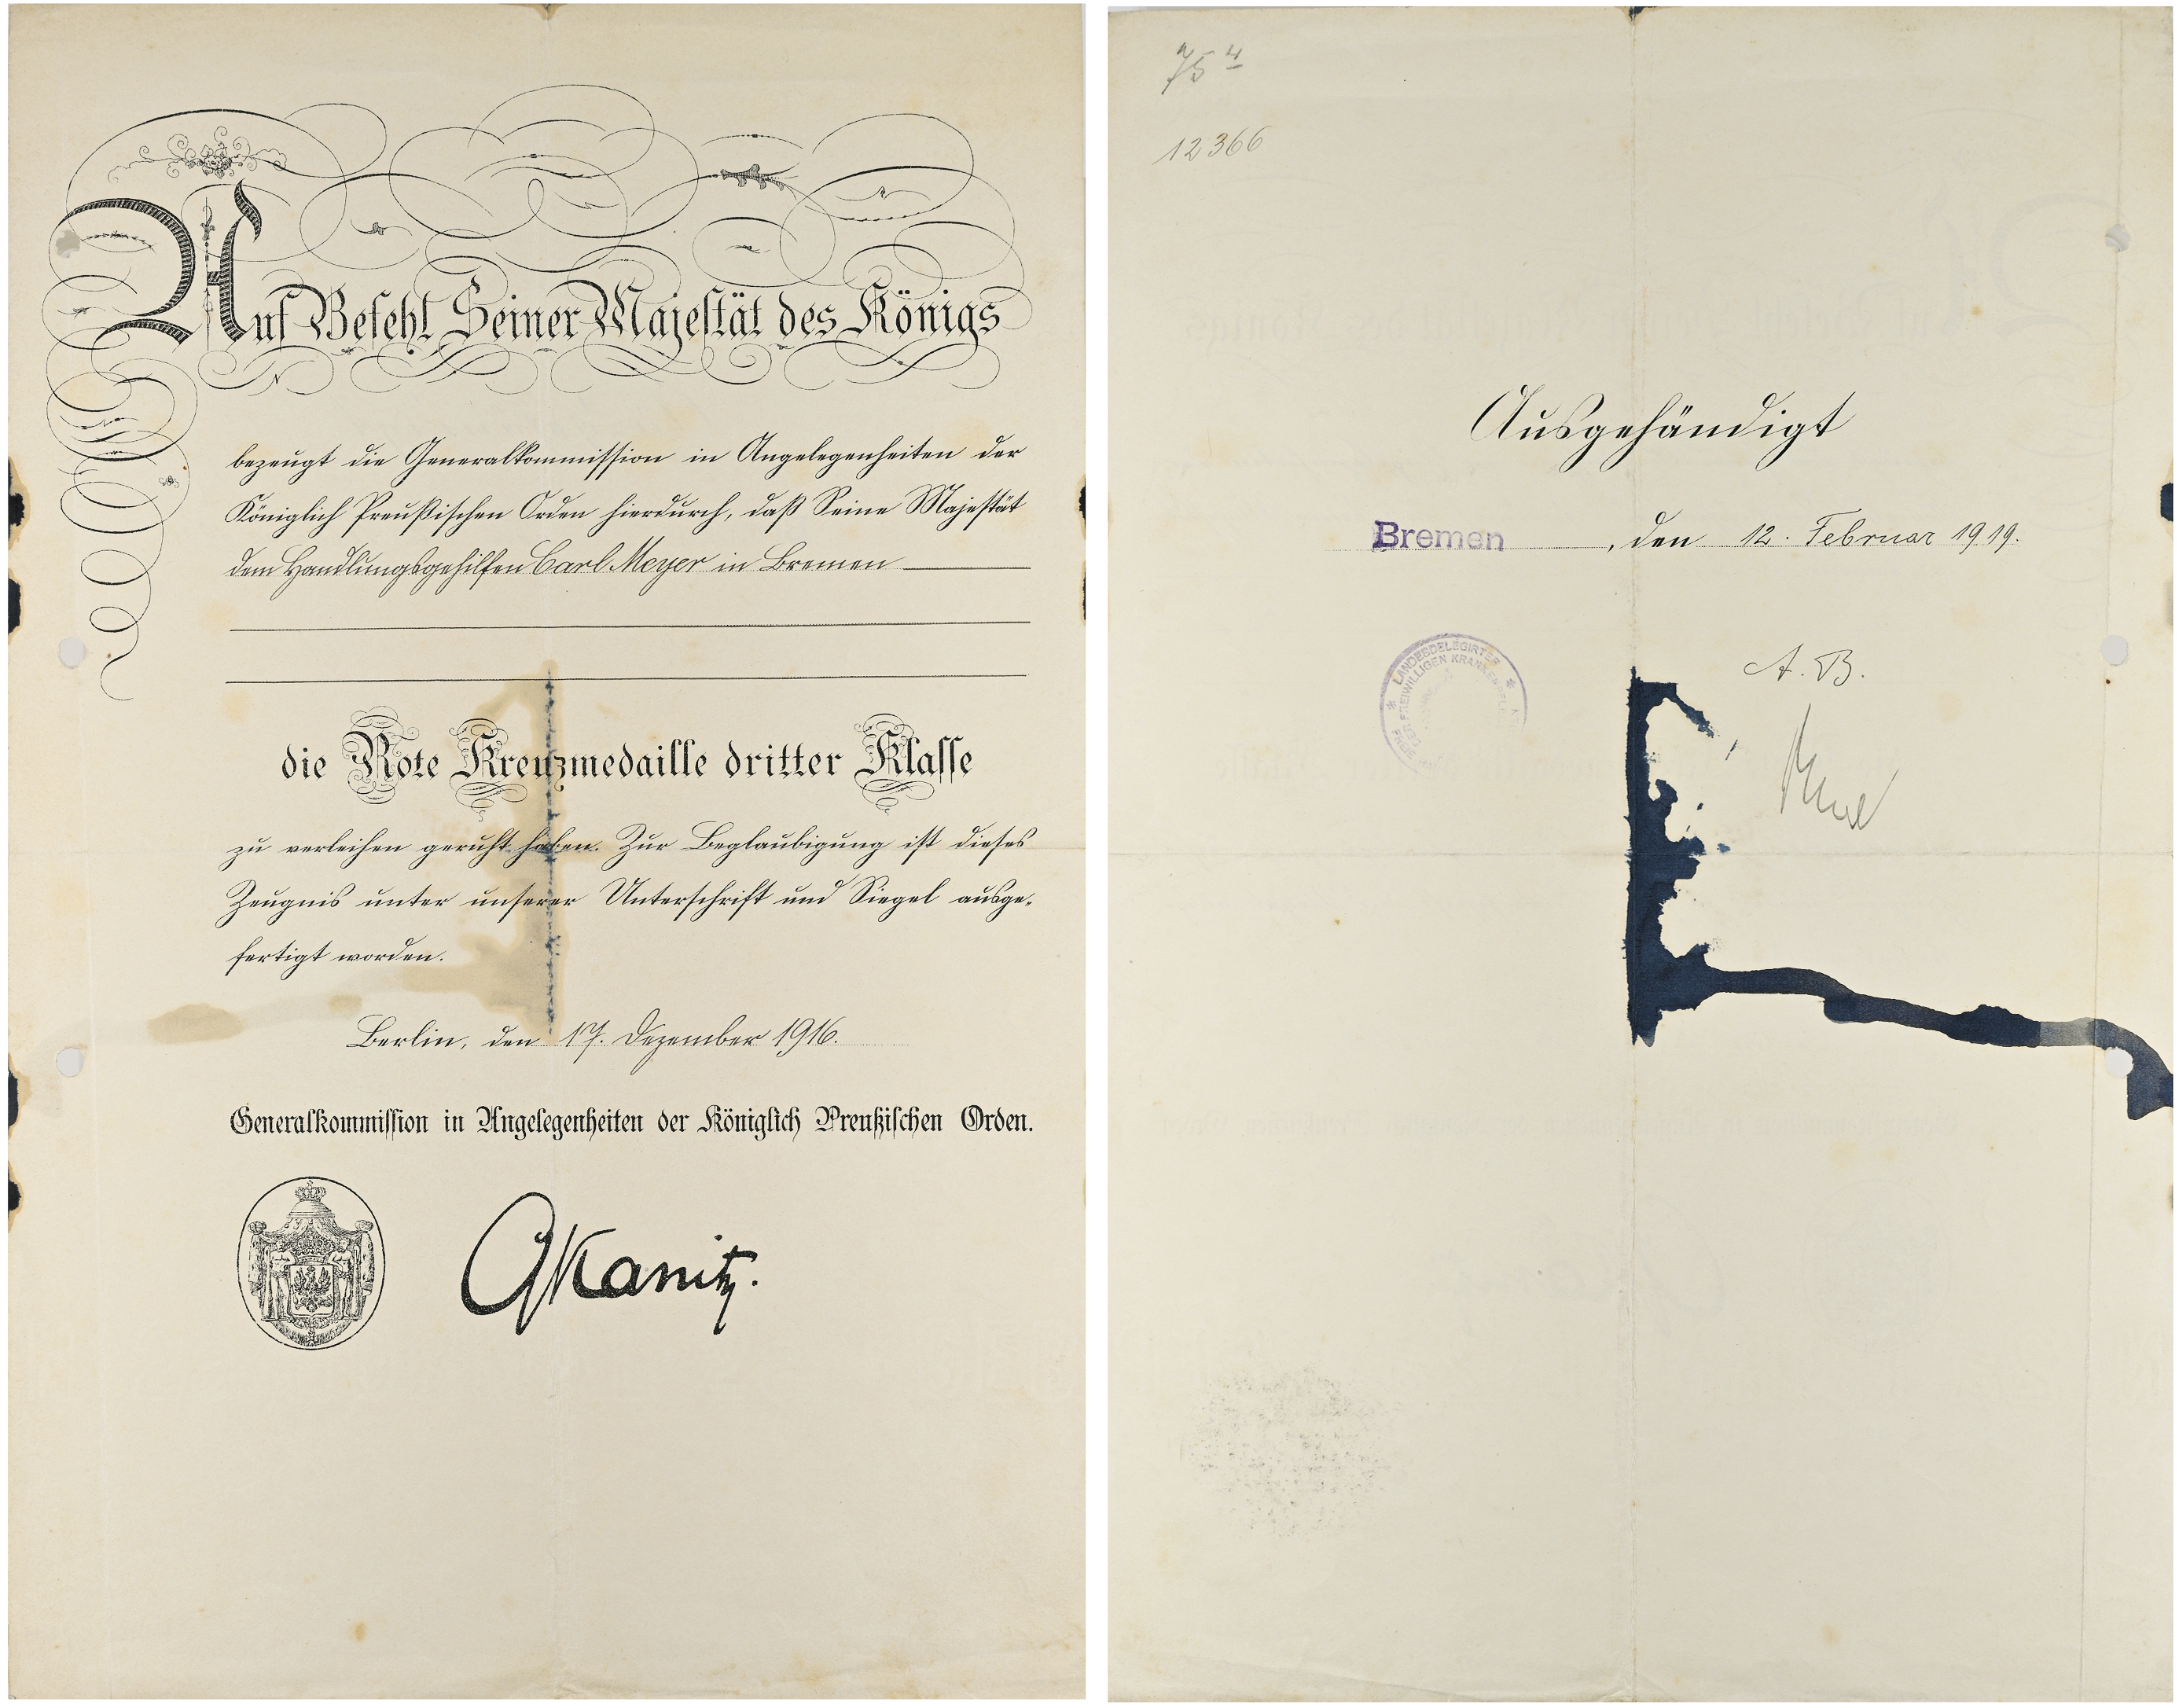 Auf Befehl Seiner Majestät des Königs
bezeugt die Generalkommission in Angelegenheiten der
Königlich Preußischen Orden hierdurch, daß Seine Majestät
dem Handlungsgehilfen Carl Meyer in Bremen
die Rote Kreuzmedaille dritter Klasse
zu verleihen geruht haben. Zur Beglaubigung ist dieses
Zeugnis unter unserer Unterschrift und Siegel ausge-
fertigt worden.
Berlin, den 17. Dezember 1916.
Generalkommission in Angelegenheiten der Königlich Preußischen Orden.
GKanitz.
75 4
12366
Ausgehändigt
Bremen, den 12. Februar 1919.
LANDESDELEGIRTER
FREIWILLIGEN
A. B.